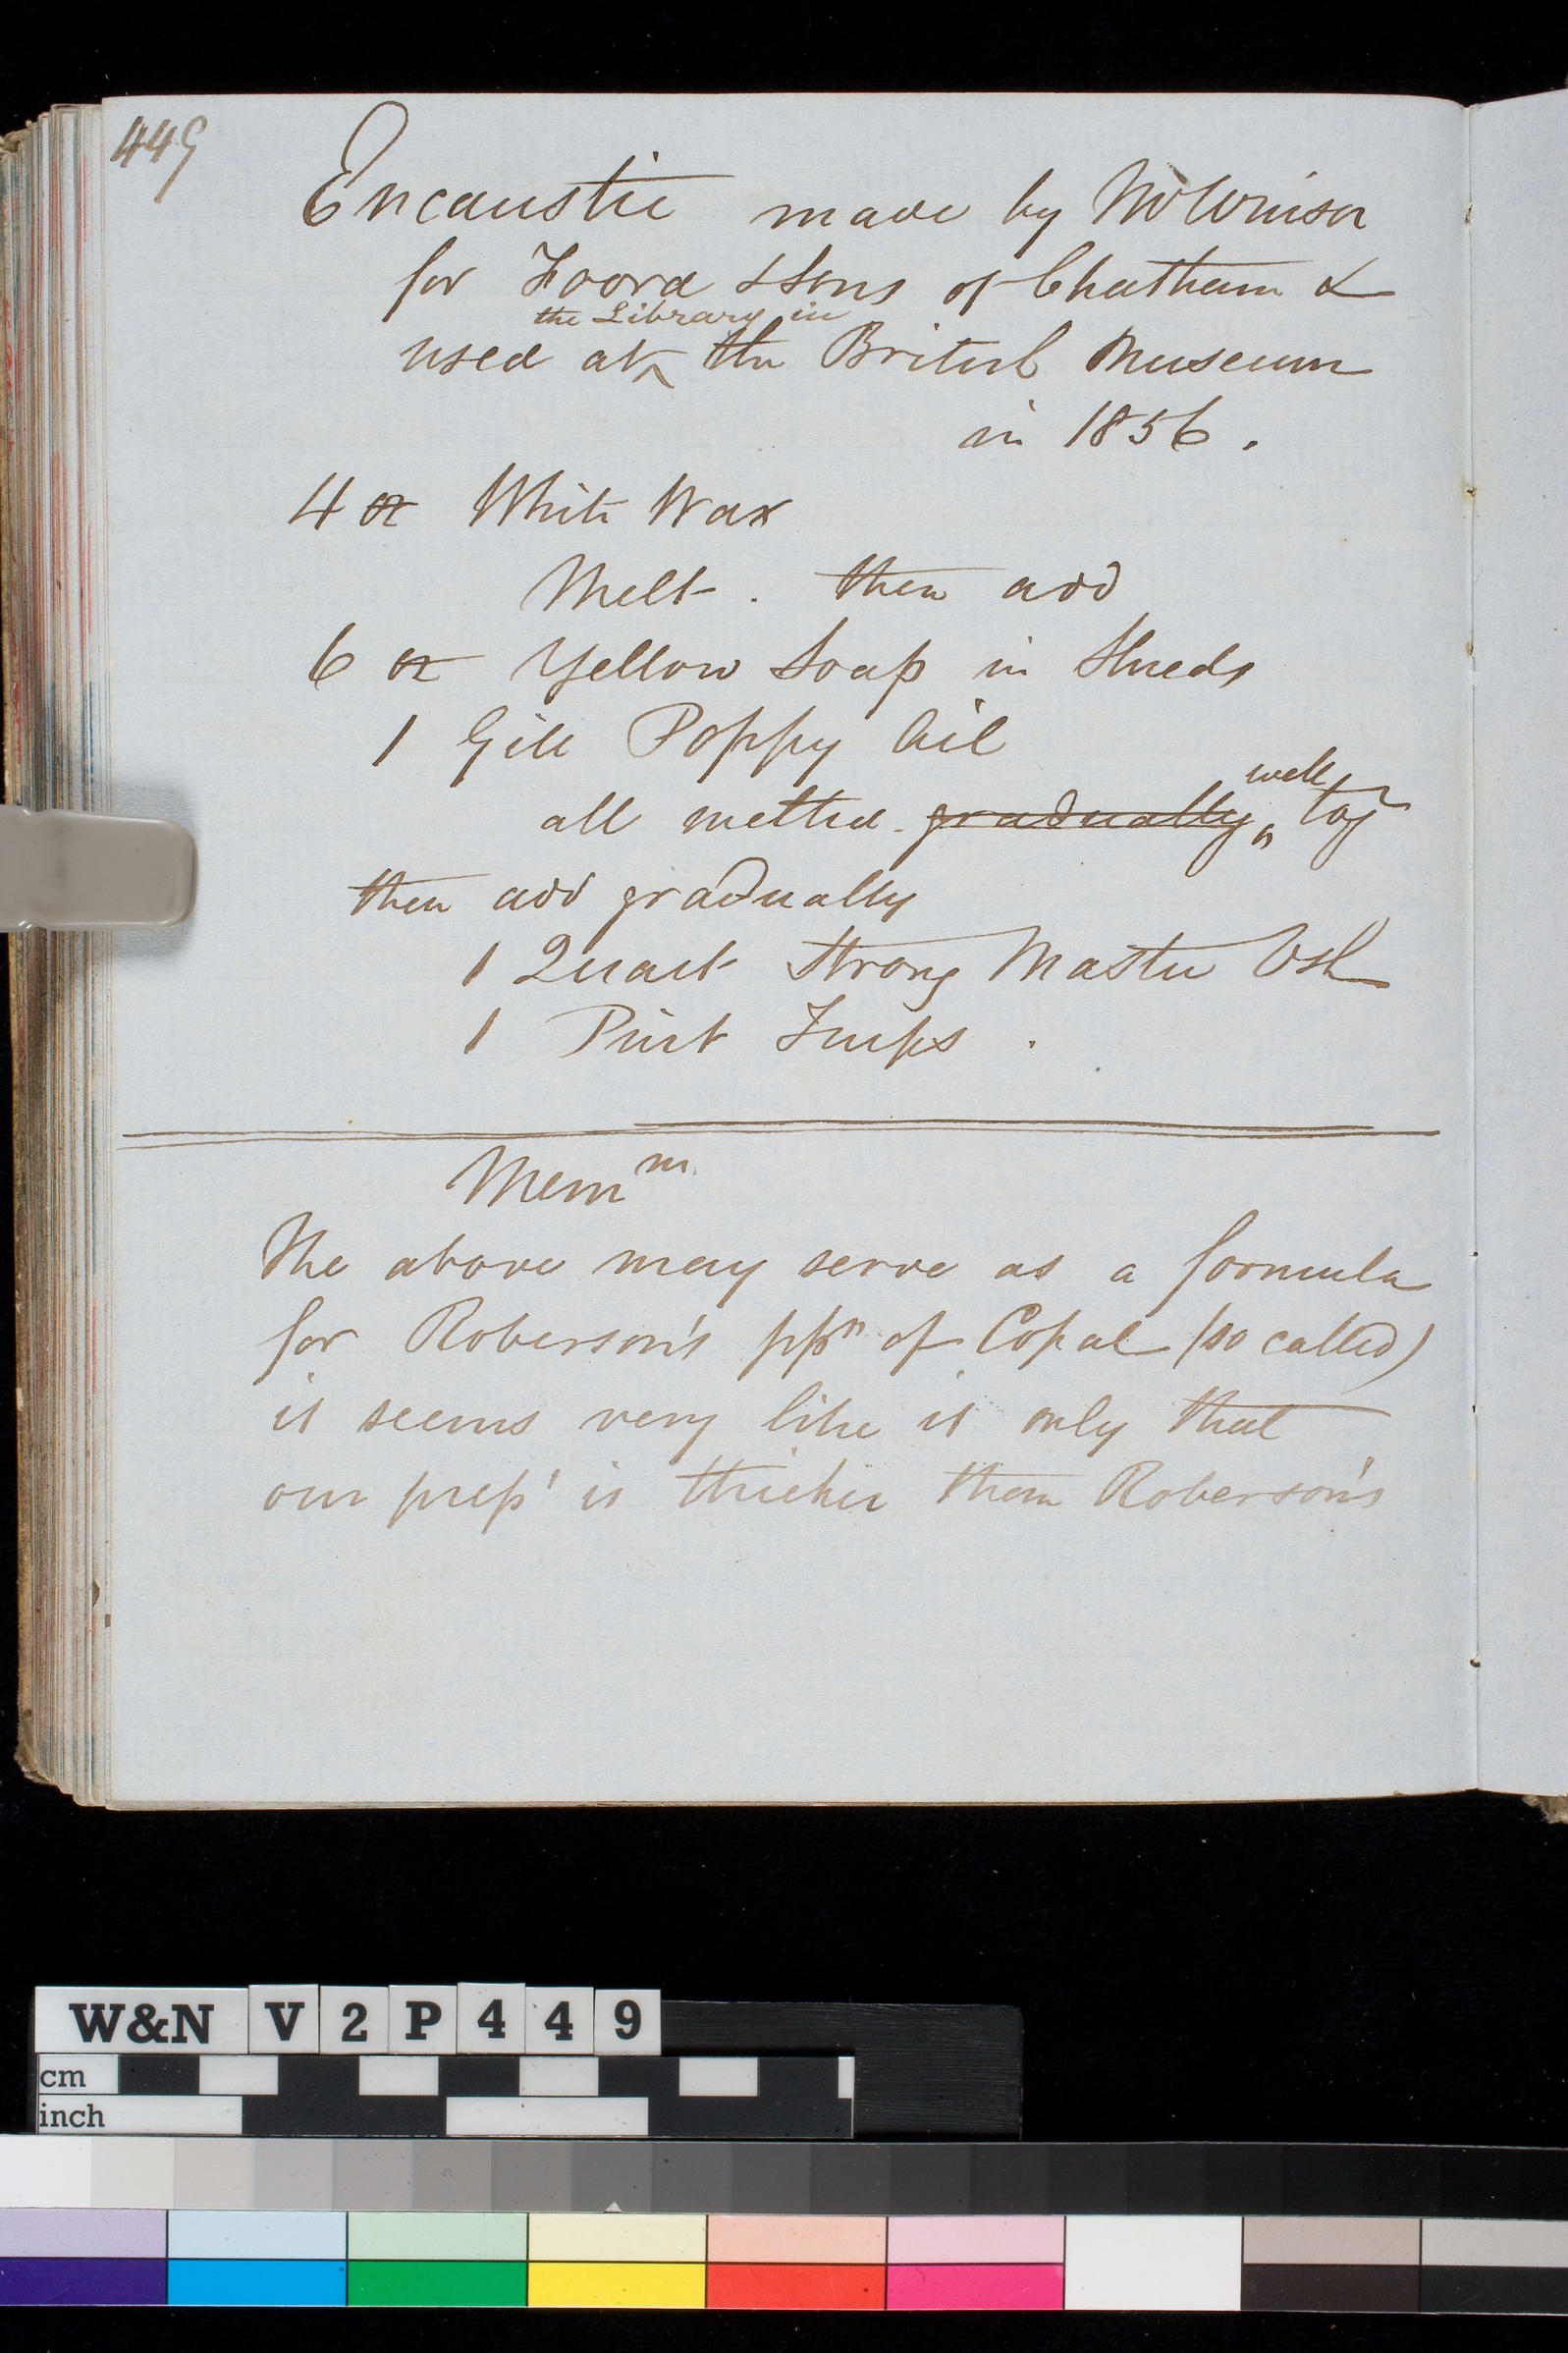 449
Encaustic made by Mr Winsor
for Foord & Sons of Chatham &
the Library in
used at ^ the British Museum
in 1856.
4 oz White Wax
Melt. then add
6 oz Yellow Soap in Shreds
1 Gill Poppy Oil
well
all melted gradually ^ togr
then add gradually
1 Quart Strong Mastic Vsh
1 Pint Turps.
Memm
The above may serve as a formula
for Roberson's ppn of Copal (so called)
it seems very like it only that
our prep' is thicker than Roberson's
W&N V 2 P 4 4 9
cm
inch